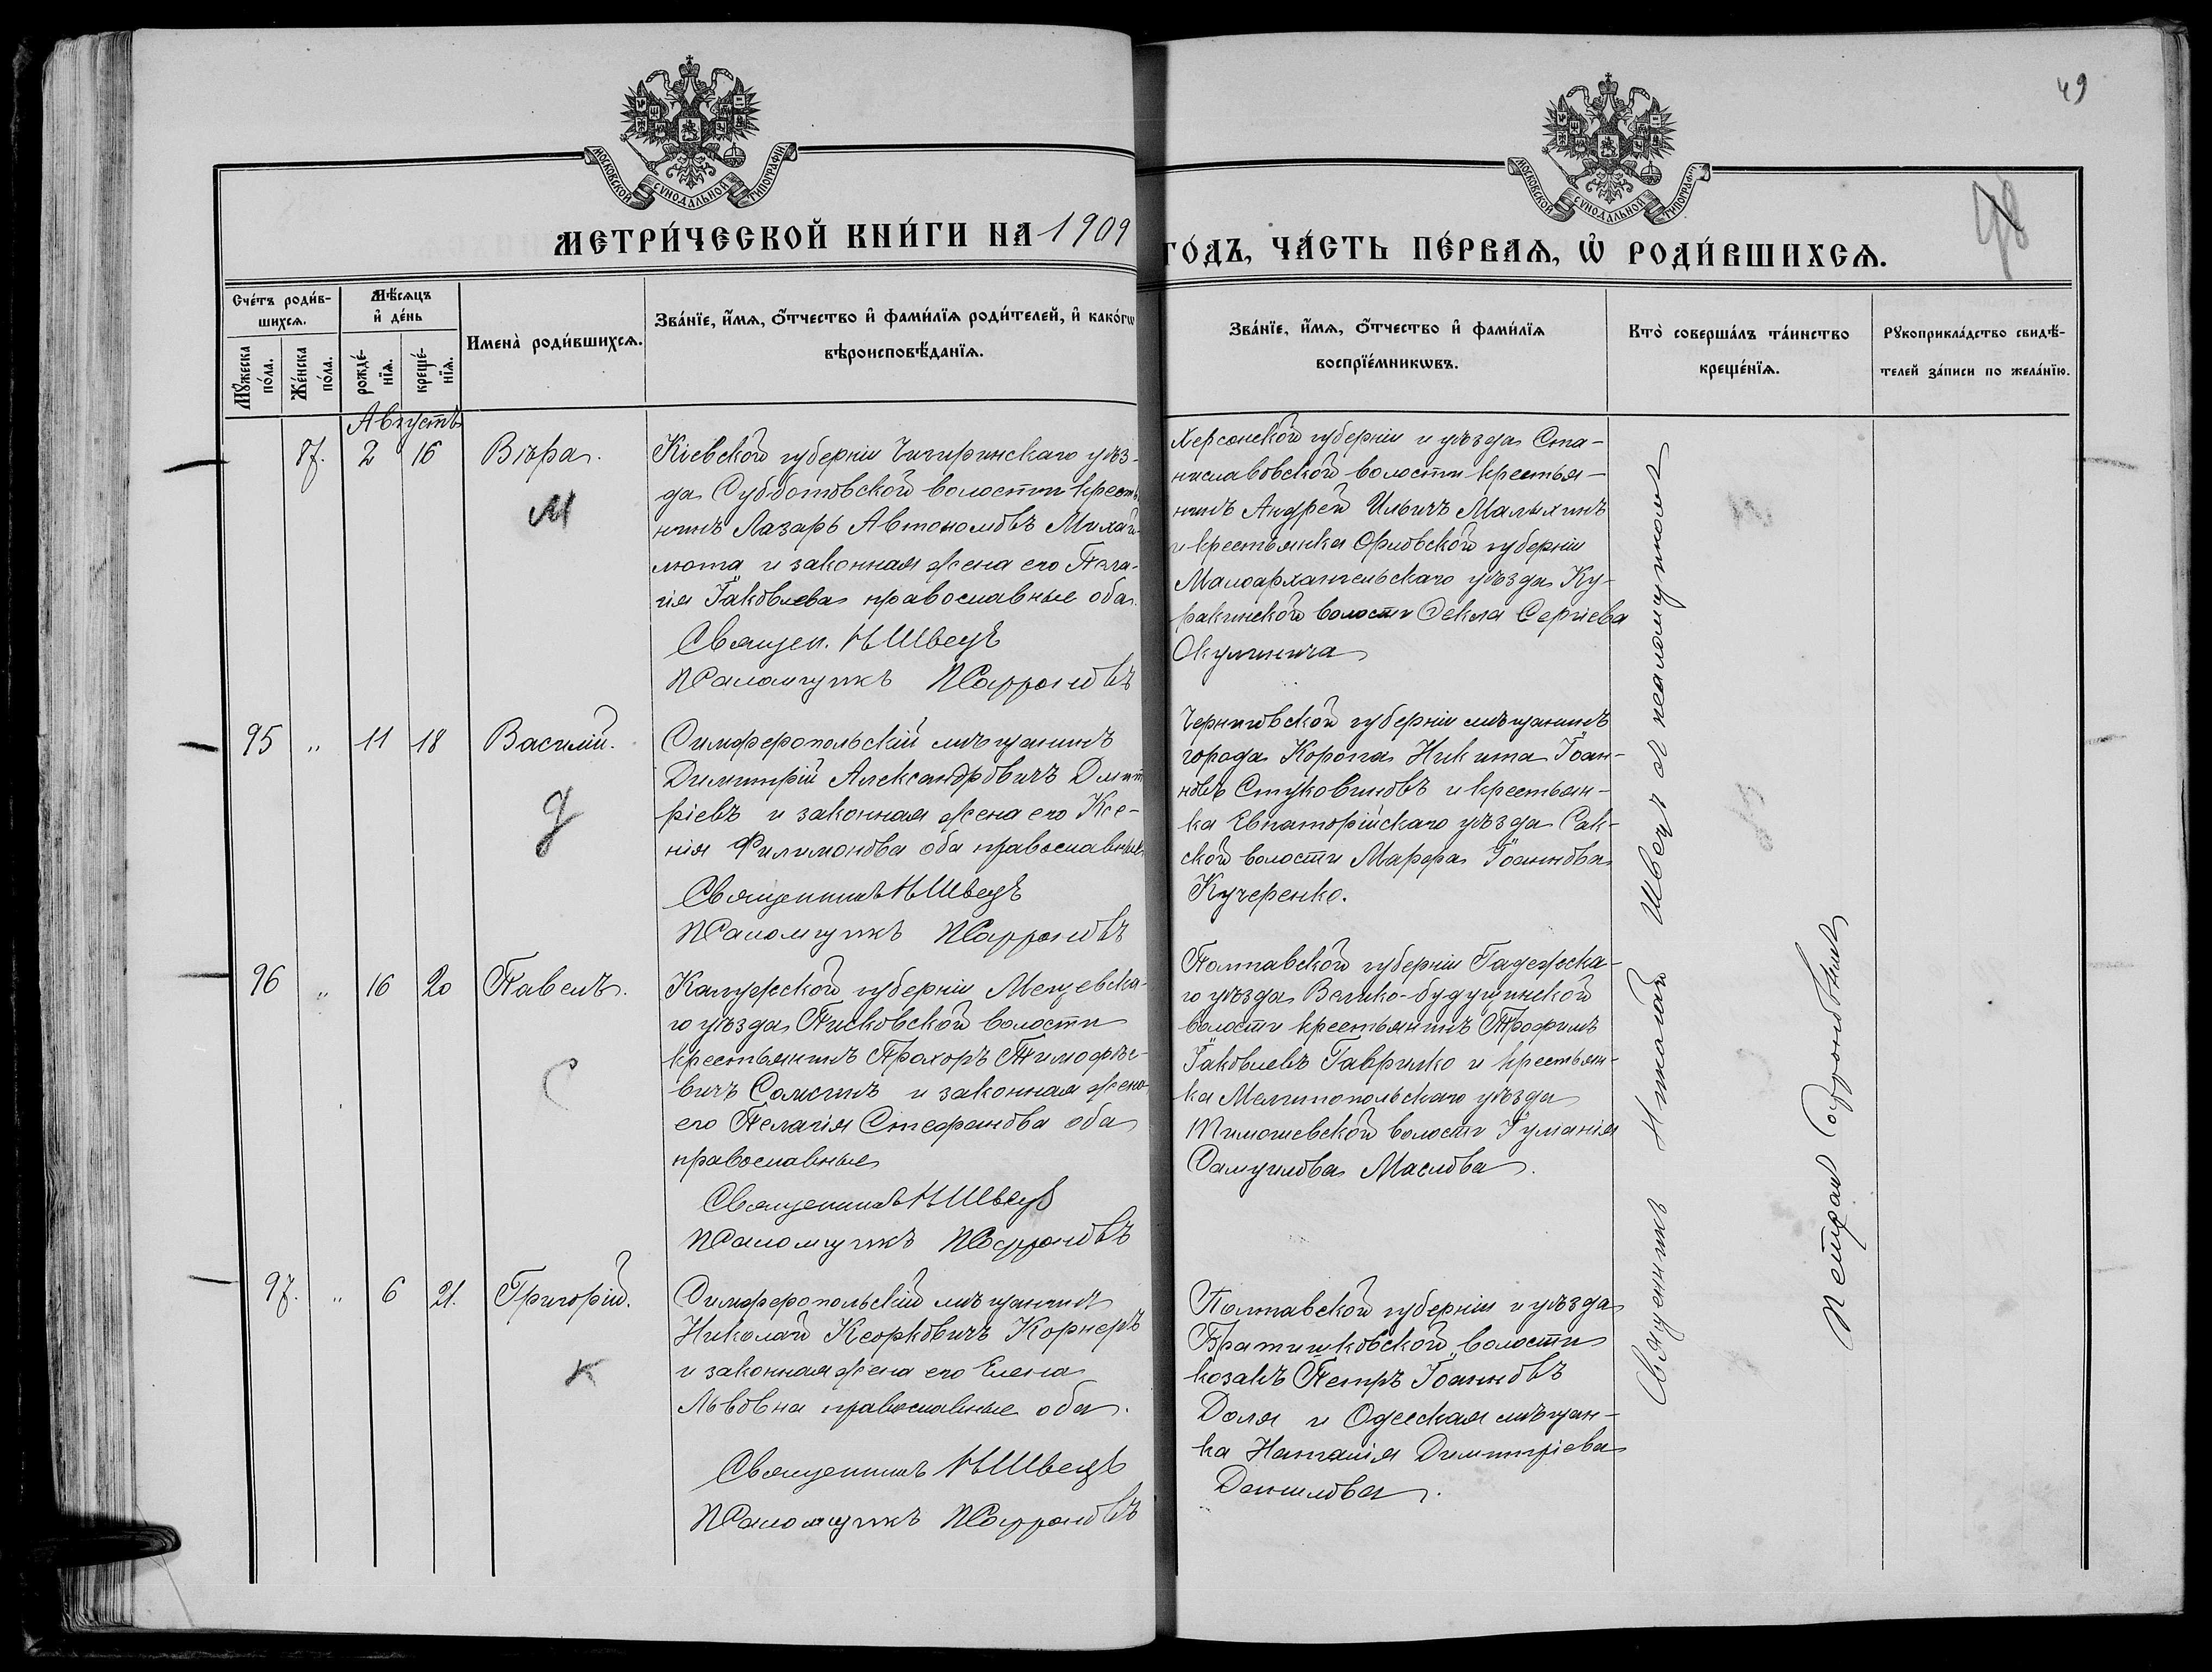 49
98
МОСКОВСКОЙ СѴНОДАЛЬНОЙ ТИПОГРАФІИ
МОСКОВСКОЙ СѴНОДАЛЬНОЙ ТИПОГРАФІИ
МЕТРИ́ЧЕСКОЙ КНИ́ГИ НА 1909
ГО́ДЪ, ЧА́СТЬ ПЕ́РВАѦ, Ѡ҆ РОДИ́ВШИХСѦ.
Сче́тъ роди́в-
шихсѧ.
Мꙋ́жеска по́ла.
Же́нска по́ла.
Мѣ́сѧцъ
и҆ де́нь
рожде́-
нїѧ.
креще́-
нїѧ.
Имена̀ роди́вшихсѧ.
Зва́нїе, и҆́мѧ, ѻ҆́тчество и҆ фами́лїѧ роди́телей, и҆ како́гѡ
вѣроисповѣ́данїѧ.
Зва́нїе, и҆́мѧ, ѻ҆́тчество и҆ фами́лїѧ
воспрїе́мникѡвъ.
Кто̀ соверша́лъ та́инство
креще́нїѧ.
Рꙋкоприкла́дство свидѣ́-
телей за́писи по жела́нїю.
Августъ
87. 2 16 Вѣра.
М
Кіевской губерніи Чигиринскаго уѣз-
да Субботовской волости кресть
нинъ Лазарь Автономовъ Михай-
люта и законная жена его Пела-
гія Іаковлева православные оба.
Священ. Н Швецъ
Псаломщикъ П Софроновъ
Херсонской губерніи и уѣзда Ста-
ниславовской волости крестья-
нинъ Андрей Ильичъ Малыхинъ
и крестьянка Орловской губерніи
Малоархангельскаго уѣзда Ку-
ракинской волости Ѳекла Сергіева
95 " 11 18 Василій.
Д
Симферопольскій мѣщанинъ
Димитрій Александровичъ Дмит
ріевъ и законная жена его Ксе-
нія Филимонова оба православные
Священникъ Н Швецъ
Псаломщикъ П Софроновъ
Черниговской губерніи мѣщанинъ
города Коропа Никита Іоан-
новъ Стуковиновъ и крестьян-
ка Евпаторійскаго уѣзда Сак-
ской волости Марфа Іоаннова
Кучеренко.
96 " 16 20 Павелъ.
С
Калужской губерніи Мещевска-
го уѣзда Писковской волости
крестьянинъ Прохоръ Тимофѣе-
вичъ Сомсинъ и законная жена
его Пелагія Стефанова оба
православные
Священникъ Н Швецъ
Псаломщикъ П Софроновъ
Полтавской губерніи Гадежска-
го уѣзда Велико-будущинской
волости крестьянинъ Трофимъ
Іаковлевъ Гаврилко и крестьян-
ка Мелитопольскаго уѣзда
Тимошевской волости Іуманія
Самуилова Маслова.
97. " 6 21. Григорій.
К
Симферопольскій мѣщанинъ
Николай Кеорковичъ Корнеръ
и законная жена его Елена
Львовна православные оба.
Священникъ Н Швецъ
Псаломщикъ П Софроновъ
Полтавской губерніи и уѣзда
Братишковской волости
козакъ Петръ Іоанновъ
Доля и Одесская мѣщан-
ка Наталія Димитріева
Данилова.
Священникъ Николай Швецъ съ псаломщикомъ
Петромъ Софроновымъ